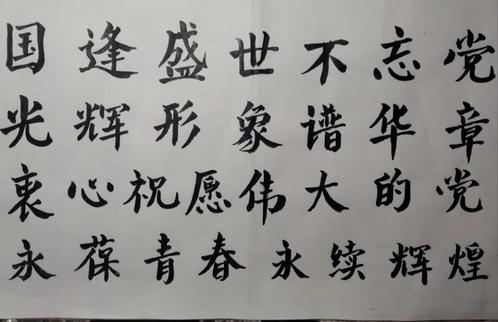 国逢盛世不忘党
光辉形象谱华章
衷心祝愿伟大的党
永葆青春永续辉煌